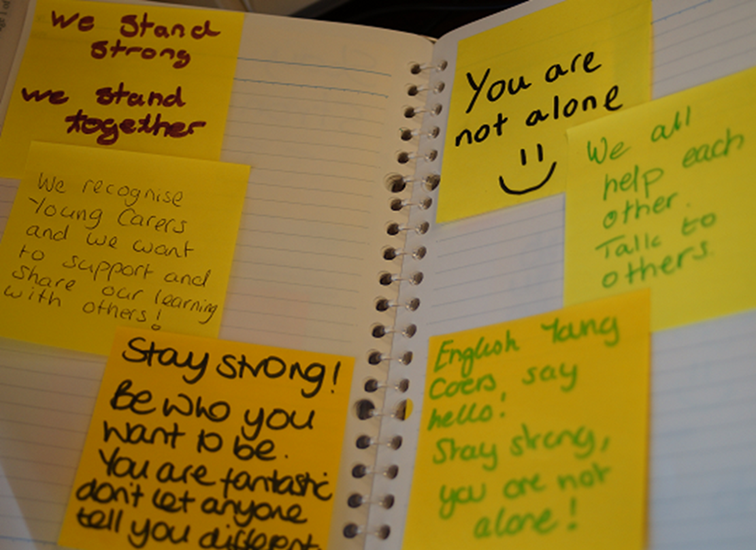 we stand
strong
we stand
together
We recognise
Young Carers
and we want
to support and
share our learning
with others!
Stay strong!
Be who you
want to be.
You are fantastic
don't let anyone
tell you different
You are
not alone
We all
help each
other.
Talk to
others.
English Young
Coers say
hello!
Stay strong,
you are not
alone!